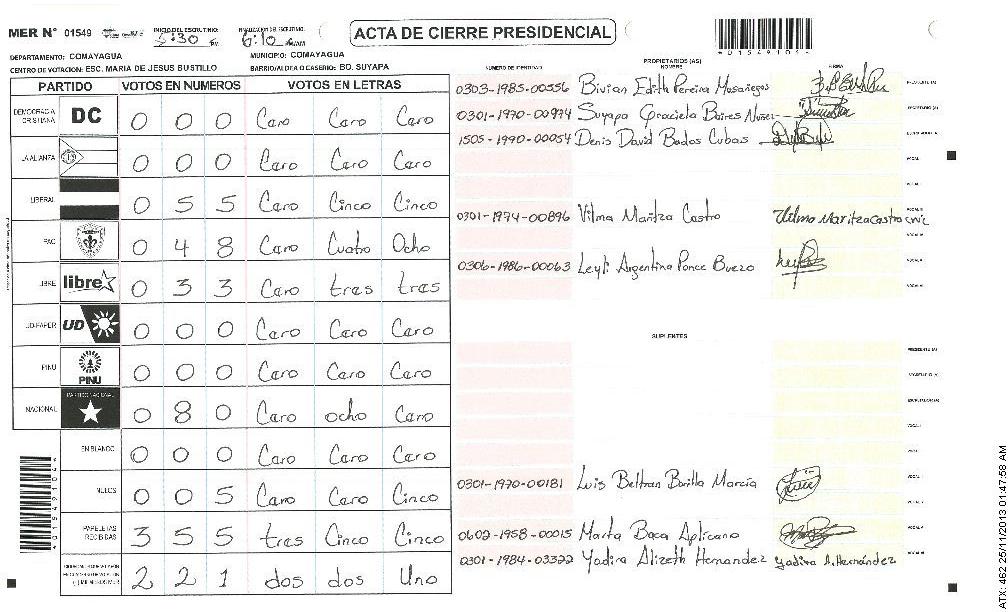 MER N° 01549 INICIO DEL ESCRUTINIO: 5:30 PM 6:10 AM/PM ACTA DE CIERRE PRESIDENCIAL
DEPARTAMENTO: COMAYAGUA MUNICIPIO: COMAYAGUA
CENTRO DE VOTACION: ESC. MARIA DE JESUS BUSTILLO BARRIO/ALDEA O CASERIO: BO. SUYAPA
PARTIDO VOTOS EN NUMEROS VOTOS EN LETRAS
DEMOCRACIA CRISTIANA DC 0 0 0 Caro Caro Caro
LA ALIANZA 0 0 0 Caro Caro Caro
LIBERAL 0 5 5 Caro Cinco Cinco
PAC 0 4 8 Caro Cuatro Ocho
LIBRE libre 0 3 3 Caro tres tres
UD-FAPER UD 0 0 0 Caro Caro Caro
PINU PINU 0 0 0 Caro Caro Caro
NACIONAL PARTIDO NACIONAL 0 8 0 Caro ocho Caro
EN BLANCO 0 0 0 Caro Caro Caro
NULOS 0 0 5 Caro Caro Cinco
PAPELETAS RECIBIDAS 3 5 5 tres Cinco Cinco
2 2 1 dos dos Uno
PROPIETARIOS (AS)
NUMERO DE IDENTIDAD NOMBRE FIRMA
0303-1985-00556 Bivian Edith Pereira Mosariegos PRESIDENTE (A)
0301-1970-00974 Suyapa Graciela Baires Nuñez SECRETARIO (A)
1505-1990-00054 Denis David Bados Cubas ESCRUTADOR (A)
VOCAL I
VOCAL II
0301-1974-00896 Vilma Maritza Castro Vilma Maritza Castro
0306-1986-00063 Leyli Argentina Ponce Buezo VOCAL V
SUPLENTES
PRESIDENTE (A)
SECRETARIO (A)
ESCRUTADOR (A)
VOCAL I
0301-1970-00181 Luis Beltran Bonilla Marcía
0602-1958-00015 Marta Baca Aplicano VOCAL V
0301-1984-03322 Yadira Alizeth Hernandez Yadira A. Hernández
ATX: 462 25/11/2013 01:47:58 AM